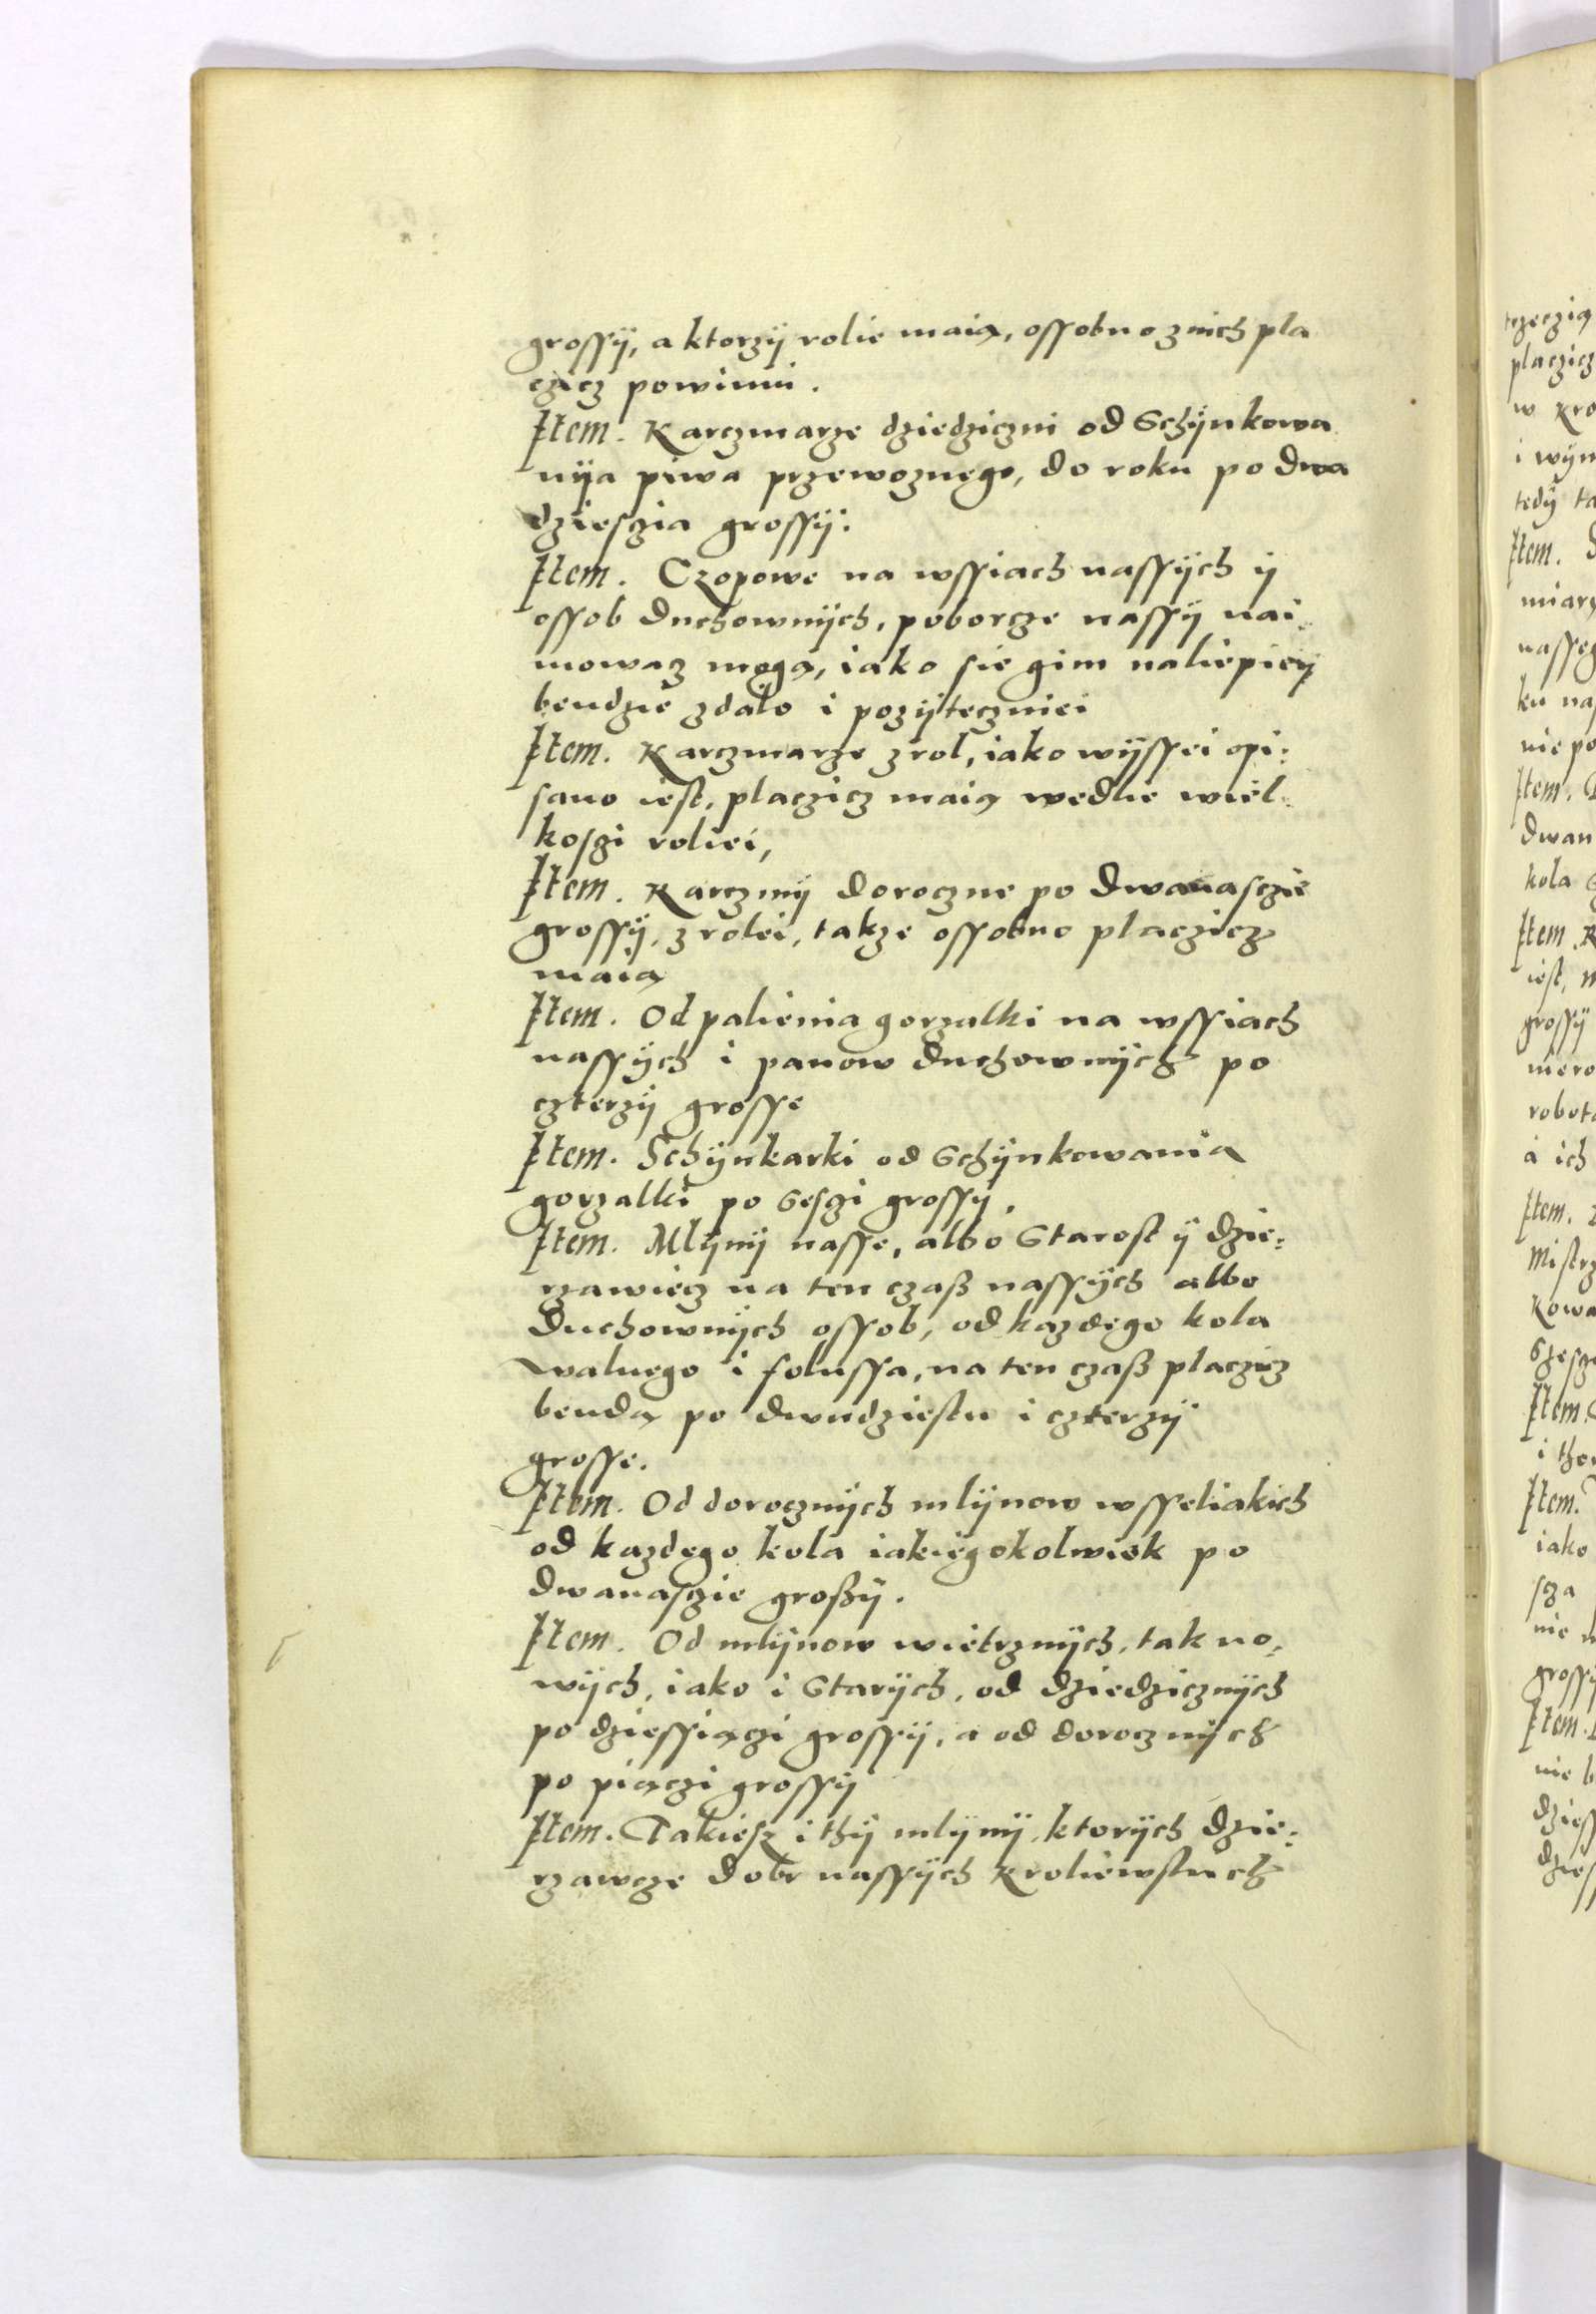 grossÿ, a ktorzÿ rolie maią, ossobno znich pla
czicz powinni.
Item. Karczmarze dziedziczni od Schÿnkowa
nÿa piwa przewoznego, do roku po dwa
dziesczia grossÿ.
Item. Czopowe na wssiach nassÿch ÿ
ossob duchownÿch, poborcze nassÿ nai:
mowacz mogą, iako sie gim naliepieÿ
bendzie zdalo i pozÿteczniei
Item. Karczmarze z rol, iako wÿssei opi:
sano iest, placzicz maią wedlie wiel:
kosczi roliei,
Item. Karczmÿ doroczne po dwanasczie
grossÿ, z rolei, takze ossobno placzicz
maią
Item. Od palienia gorzalki na wssiach
nassÿch i panow duchownÿch po
czterzÿ grosse
Item. Schÿnkarki od Schÿnkowania
gorzalki po sesczi grossÿ.
Item. Mlÿnÿ nasse, albo Starost ÿ dzie:
rzawiecz na ten czaß nassÿch albo
duchownÿch ossob, od kazdego kola
walnego i folussa, na ten czaß placzicz
bendą po dwudziestu i czterzÿ
grosse.
Item. Od dorocznÿch mlÿnow wsseliakich
od kazdego kola iakiegokolwiek po
dwanasczie großÿ.
Item. Od mlÿnow wietrznÿch, tak no:
wÿch, iako i Starÿch, od dziedzicznÿch
po dziessiączi grossÿ, a od dorocznÿch
po piączi grossÿ
Item. Takiesz i thÿ mlÿnÿ, ktorÿch dzie:
rzawcze dobr nassÿch Kroliewskich